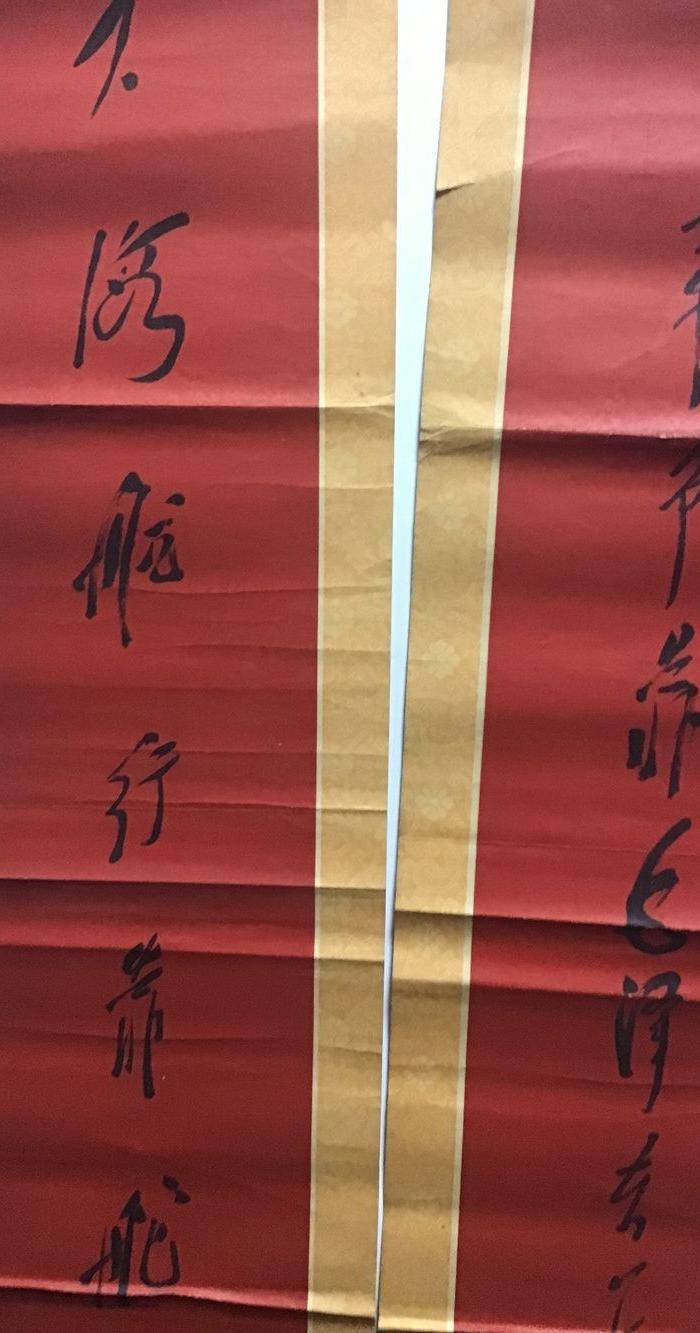 海航行靠舵
命靠毛泽东